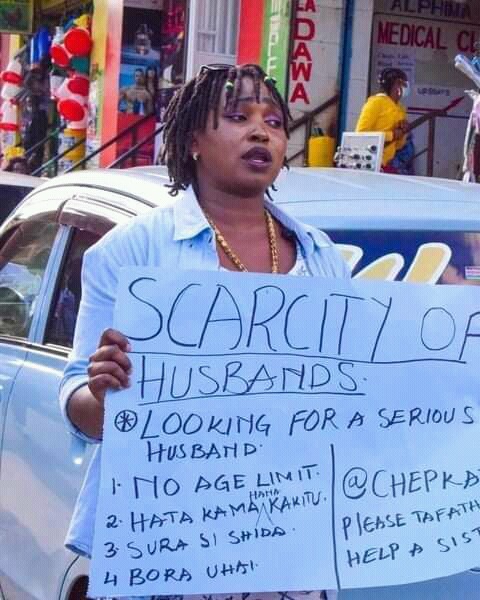 SCARCITY OF
HUSBANDS.
* LOOKING FOR A SERIOUS
HUSBAND.
1. NO AGE LIMIT.
2. HATA KAMA HANA KAKITU.
3. SURA SI SHIDA.
4 BORA UHAI.
@CHEPKA
PLEASE TAFATH
HELP A SIST
DAWA
ALPHIMA
MEDICAL CL